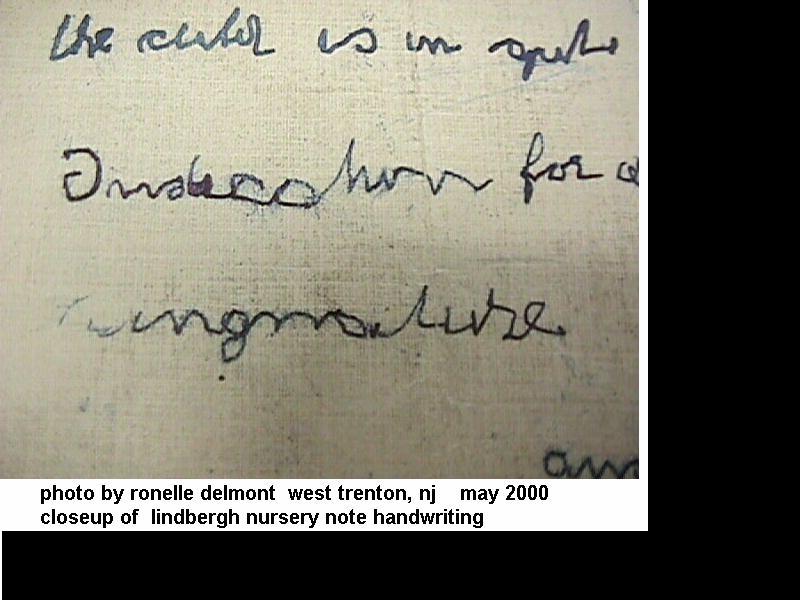 the child is in gut
Indication for a
singnature
an
photo by ronelle delmont west trenton, nj may 2000
closeup of lindbergh nursery note handwriting